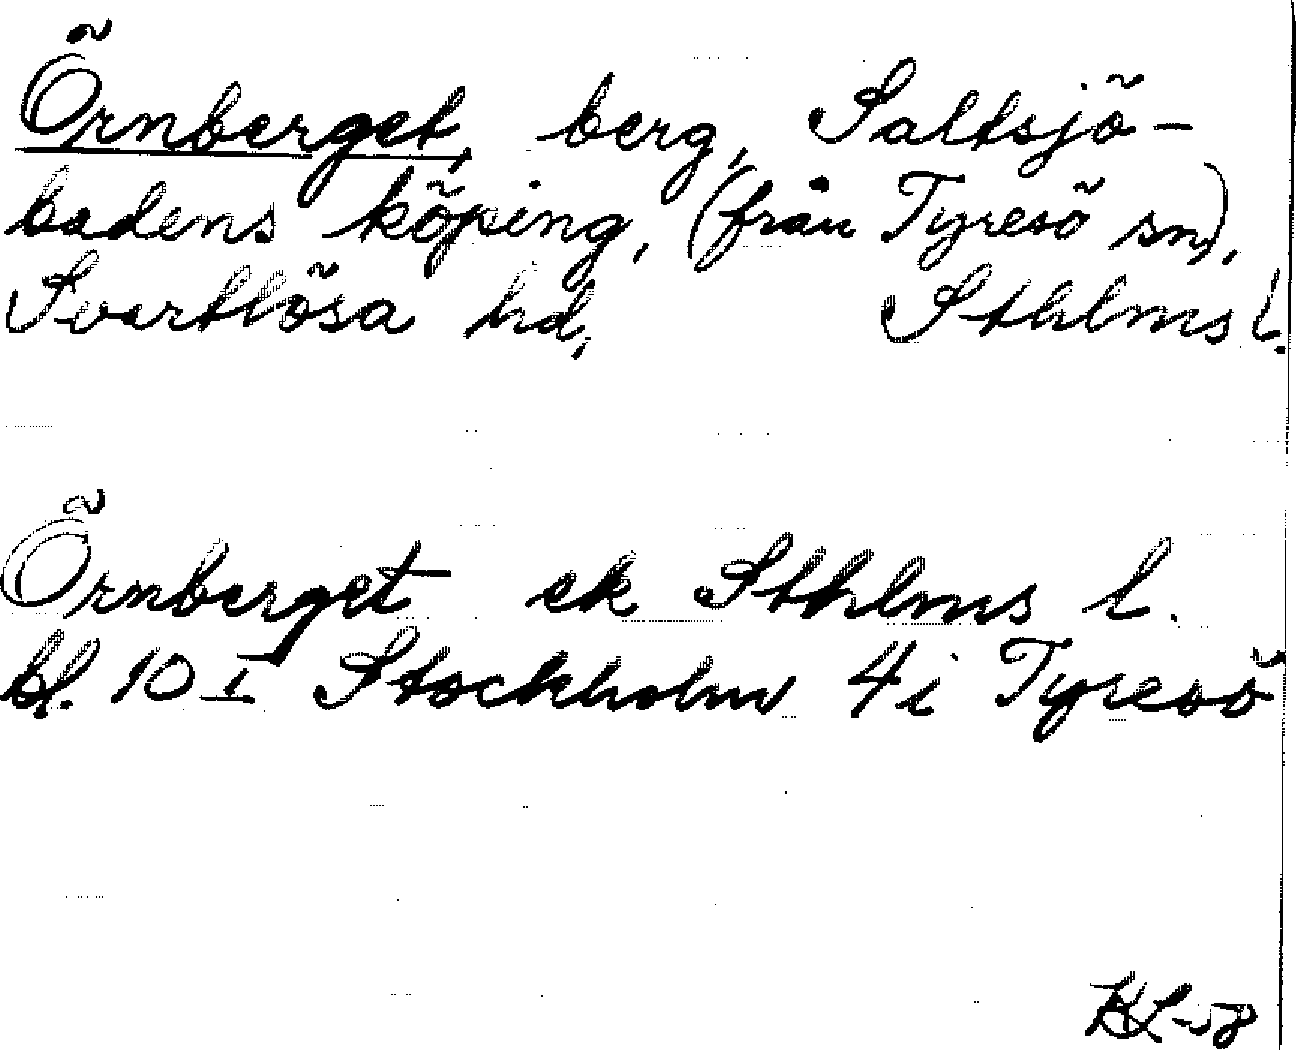 Örnberget, berg, Saltsjö-
badens köping, (från Tyresö sn),
Svartlösa hd, Sthlms l.
Örnberget ek Sthlms l.
bl. 10 I Stockholm 4 i Tyresö
KL-58